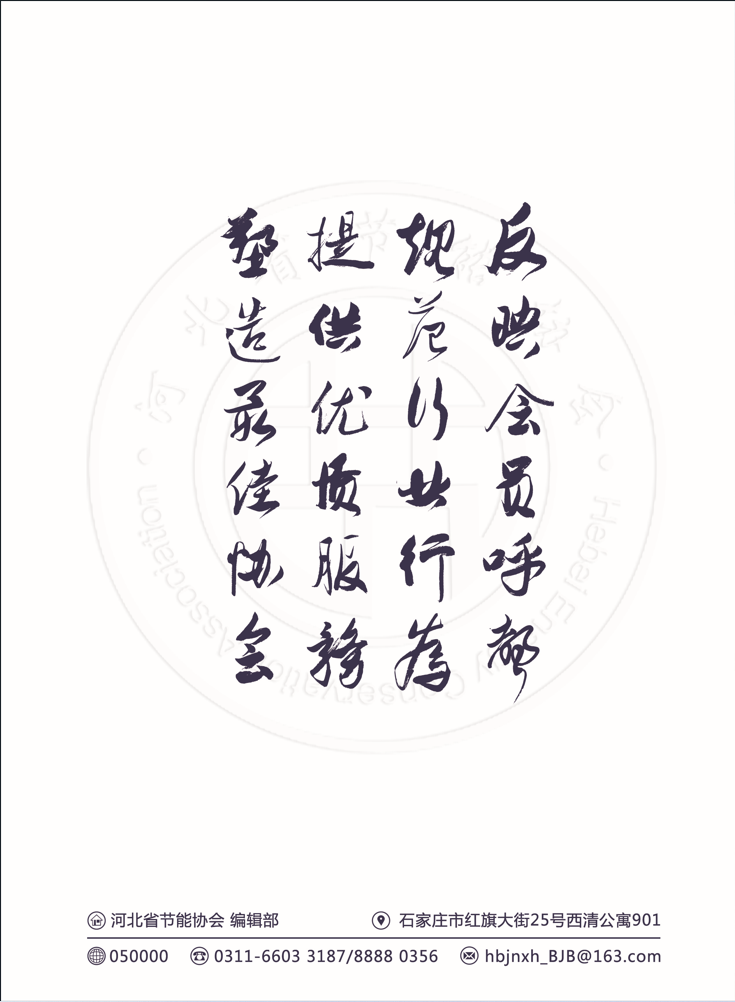 反映会员呼声
规范行业行为
提供优质服务
塑造最佳协会
河北省节能协会
Hebei Energy Conservation Association
河北省节能协会 编辑部
石家庄市红旗大街25号西清公寓901
050000
0311-6603 3187/8888 0356
hbjnxh_BJB@163.com